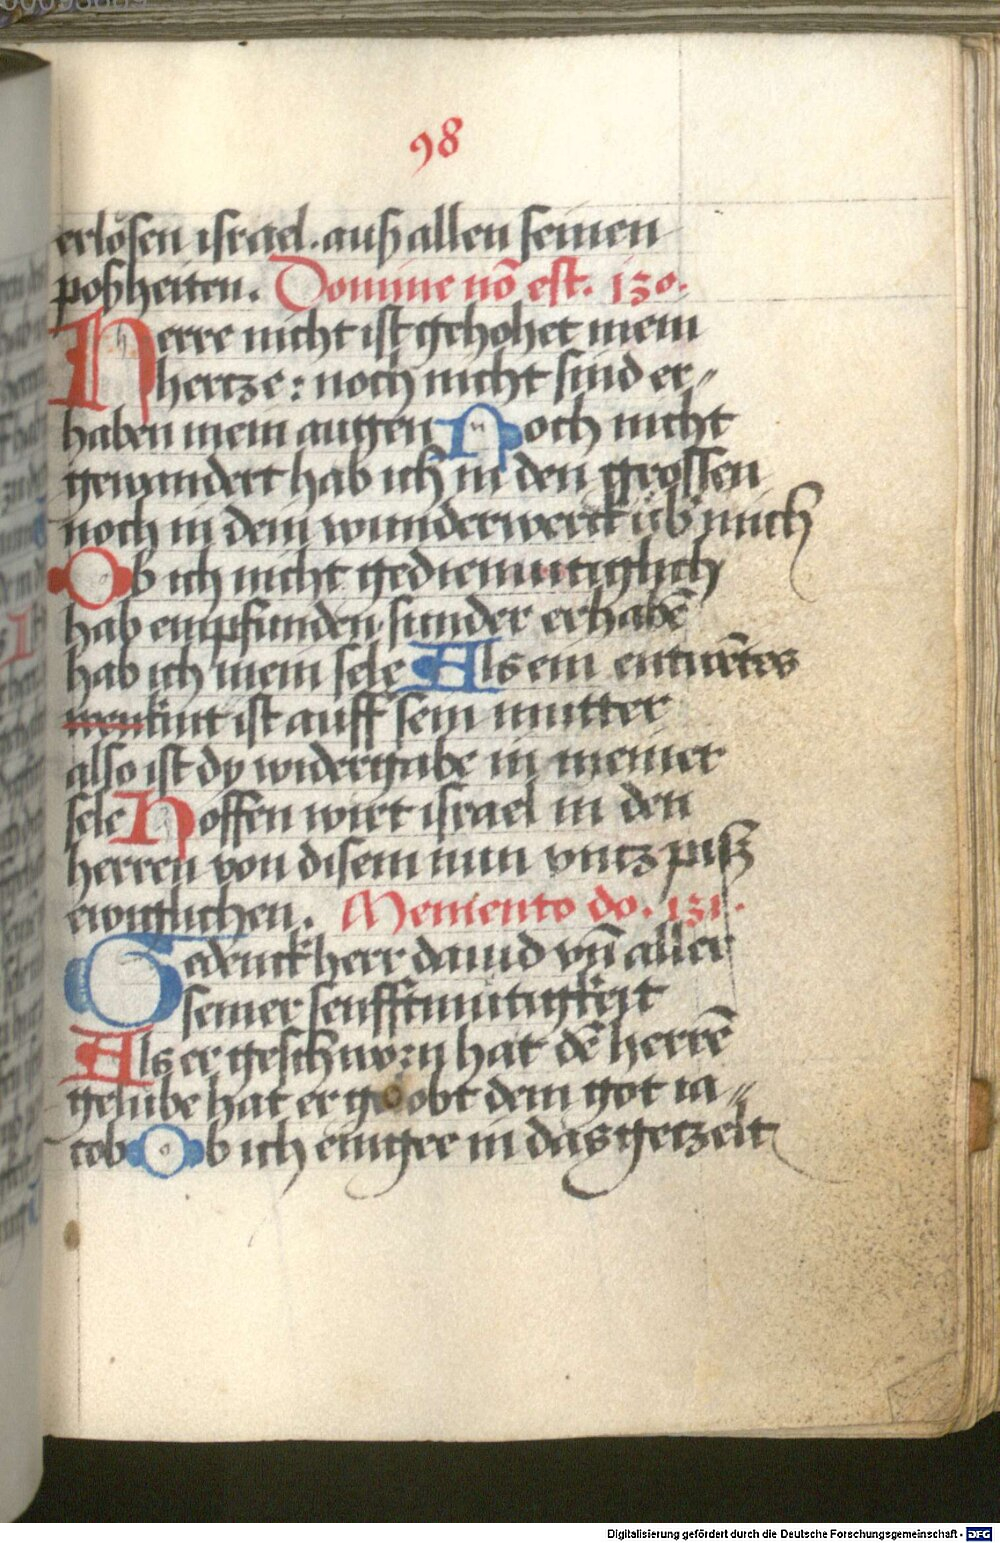 98
erlösen israel. auß allen seinen
poßheiten. Domine nō est. 130.
Herre nicht ist gehohet mein
hertze: noch nicht sind er⸗
haben mein augen Noch nicht
gewandert hab ich in den grossen
noch in dein wunderwerck üb mich
Ob ich nicht gediemutiglich
hab empfunden sunder erhabē
hab ich mein sele Als ein entwētes
kint ist auff sein mutter
also ist dy widergabe in meiner
sele Hoffen wirt israel in den
herren von disem nun vntz piß
ewiglichen. Memento do. 131.
Gedenck herr dauid vn̄ aller
seiner senfftmutigkeit
Als er geschworn hat dē herrē
gelube hat er gelobt dem got ia⸗
cob Ob ich eingee in das getzelt
Digitalisierung gefördert durch die Deutsche Forschungsgemeinschaft - DFG